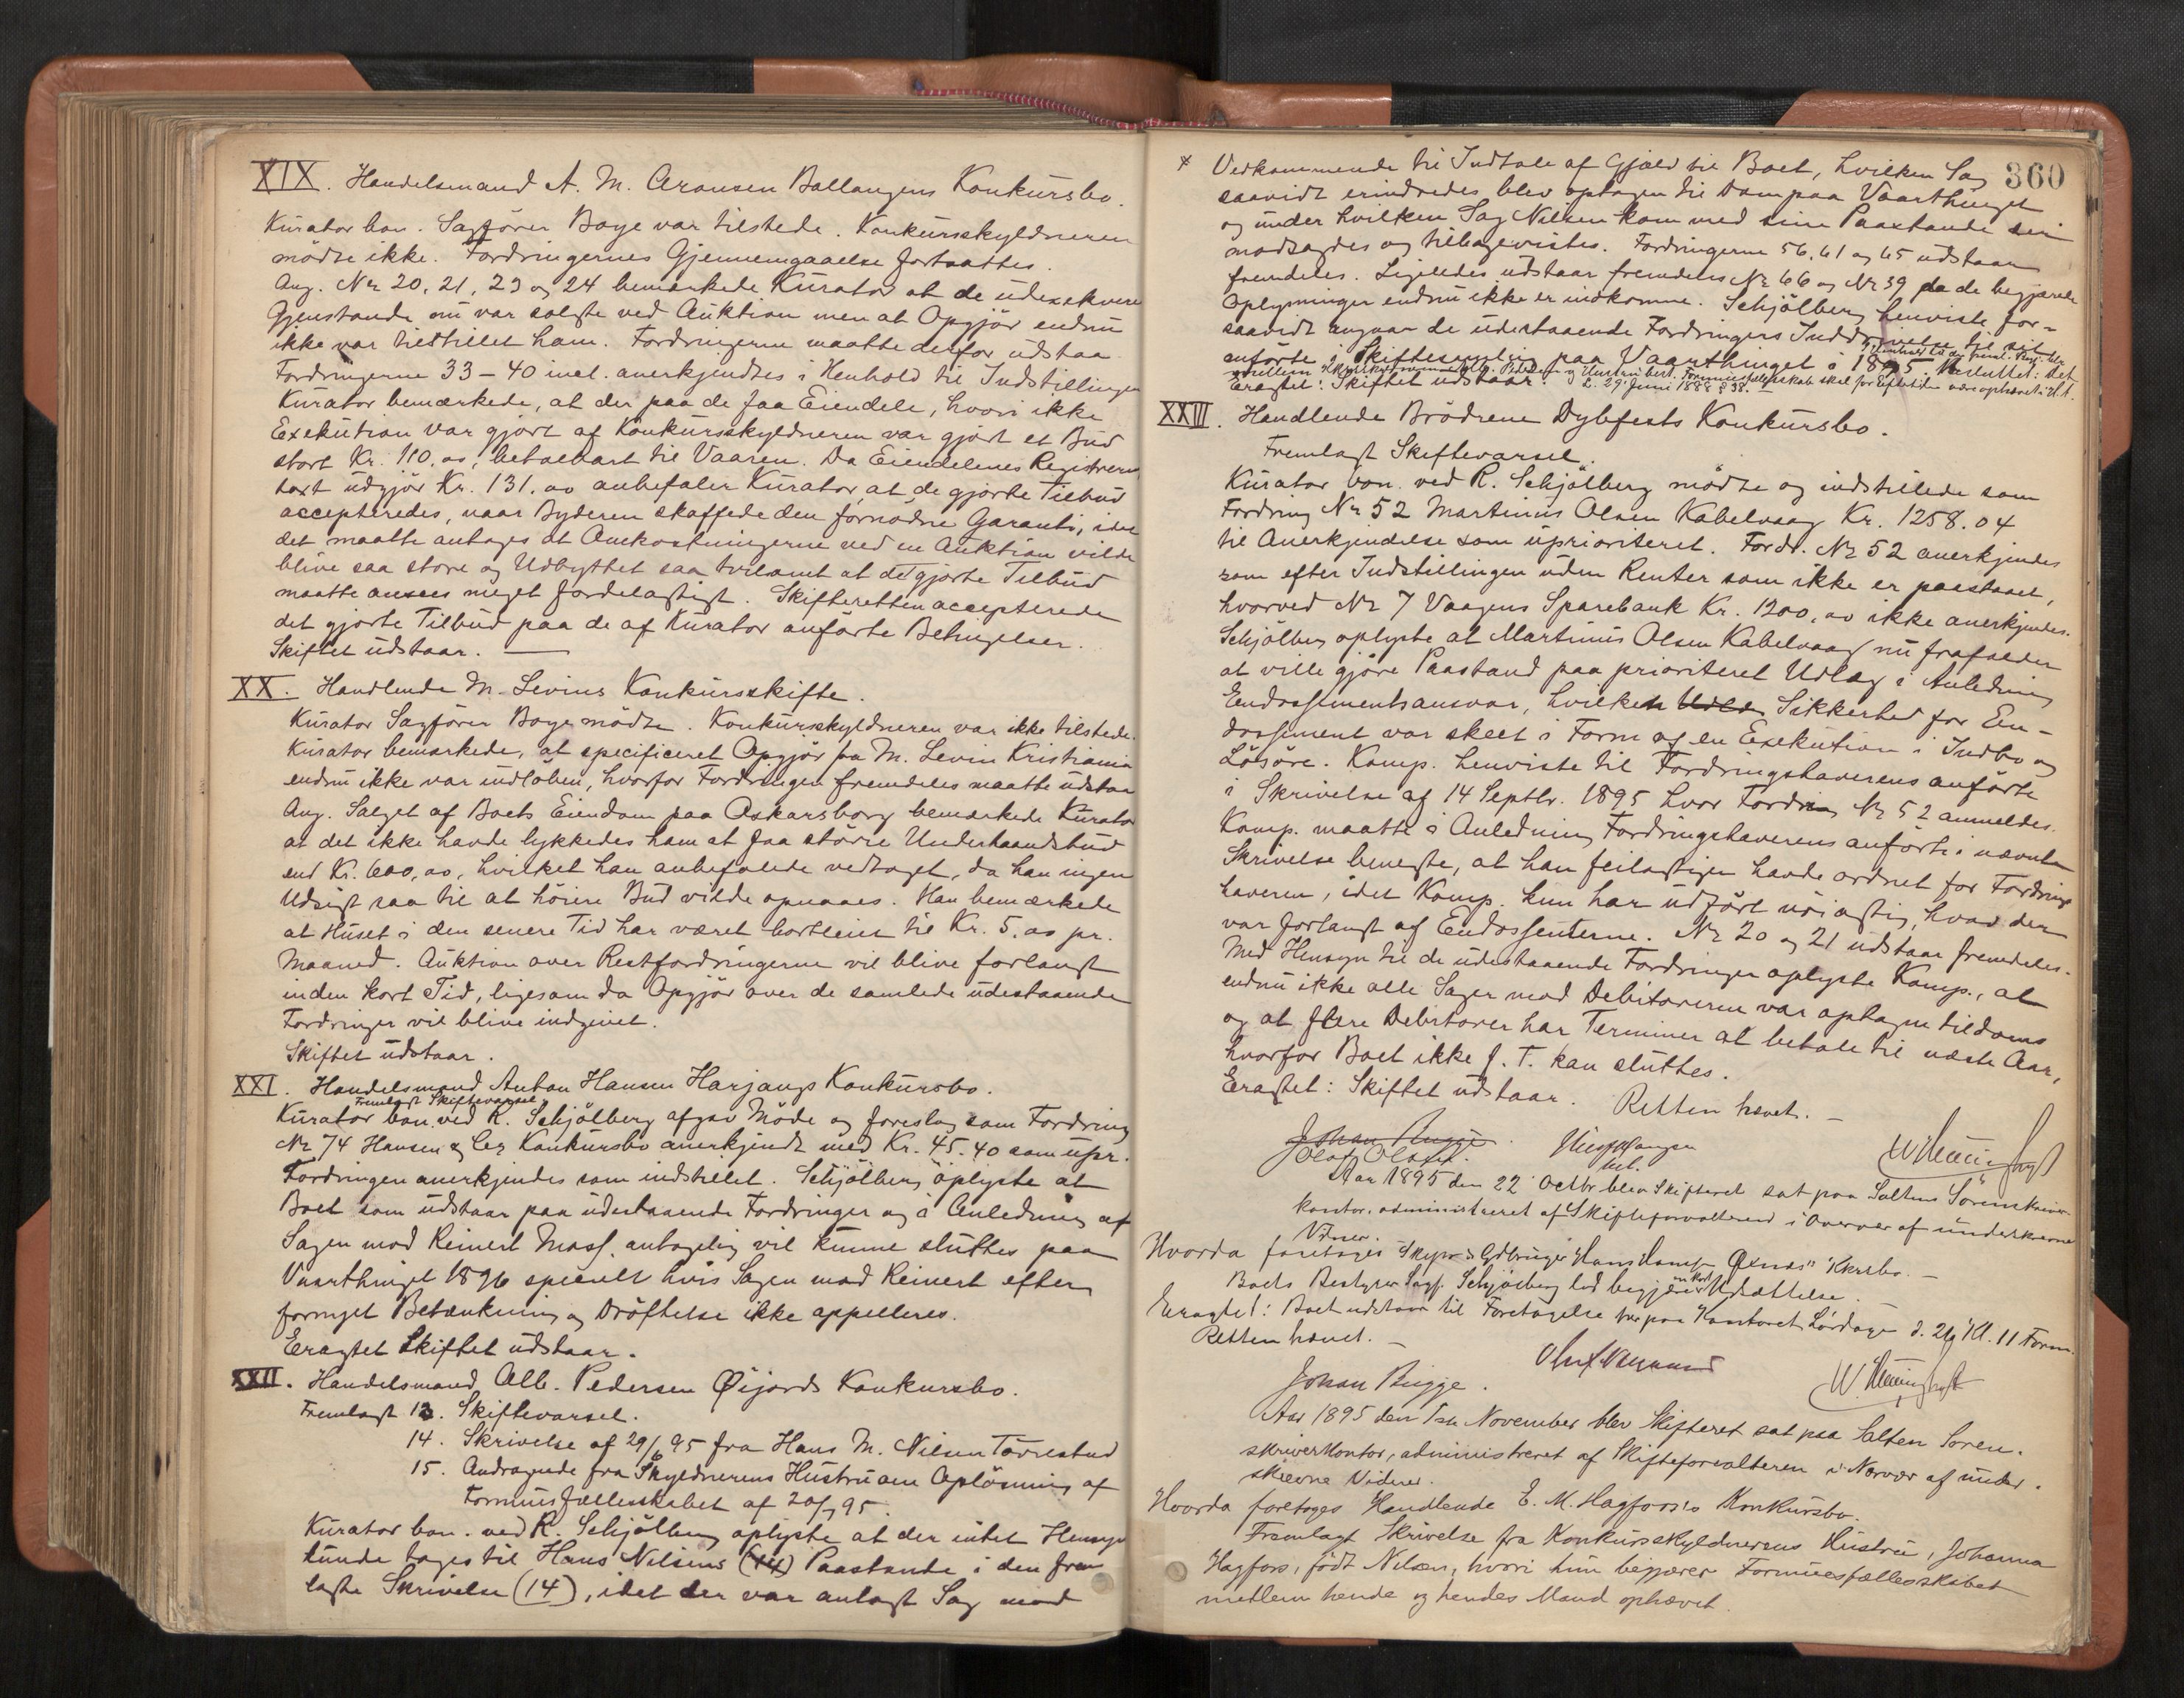 XIX. Handelsmand A. M. Aronsen Ballangens Konkursbo.
Kurator bon. Sagfører Boye var tilstede. Konkursskyldneren
mödte ikke. Fordringernes Gjennemgaaelse fortsattes.
Ang. Nr 20, 21, 23 og 24 bemærkede Kurator at de udexekverede
Gjenstande nu var solgte ved Auktion men at Opgjör endnu
ikke var tilstillet ham. Fordringerne maatte derfor udstaa
Fordringerne 33-40 incl. anerkjendtes i Henhold til Indstillingen
Kurator bemærkede, at der paa de faa Eiendele, hvori ikke
Exekution var gjort af Konkursskyldneren var gjort et Bud
stort Kr. 110.00, betalbart til Vaaren. Da Eiendelenes Registrerings
taxt udgjör Kr. 131.00 anbefaler Kurator at de gjorte Tilbud
accepteredes, naar Byderen skaffede den fornødne Garanti, idet
det maatte antages at Omkostningerne ved en Auktion vilde
blive saa store og Udbyttet saa tvilsomt at det gjorte Tilbud
maatte ansees meget fordelagtigt. Skifteretten accepterede
det gjorte Tilbud paa de af Kurator anförte Betingelser.
Skiftet udstaar.
XX. Handlende M. Levins Konkursskifte.
Kurator Sagfører Boye mödte. Konkursskyldneren var ikke tilstede.
Kurator bemærkede, at specificeret Opgjör fra M. Levin Kristiania
endnu ikke var indlöben, hvorfor Fordringen fremdeles maatte udstaa
Ang. Salget af Boets Eiendom paa Oskarsborg bemærkede Kurator
at det ikke havde lykkedes ham at faa större Underhaandsbud
end Kr. 600,00, hvilket han anbefalede vedtaget, da han ingen
Udsigt saa til at höiere Bud vilde opnaaes. Han bemærkede
at Huset i den senere Tid har været bortleiet til Kr. 5.00 pr.
Maaned. Auktion over Restfordringerne vil blive forlangt
inden kort Tid, ligesom da Opgjör over de samlede udestaaende
Fordringer vil blive indgivet.
Skiftet udstaar.
XXI. Handelsmand Anton Hansen Harjangs Konkursbo.
Fremlagt Skiftevarsel.
Kurator bon. ved R. Schjölberg afgav Möde og foreslog som Fordring
Nr 74 Hansen & Co Konkursbo anerkjendt med Kr. 45.40 som upr.
Fordringen anerkjendes som indstillet. Schjölberg oplyste at
Boet som udstaar paa udestaaende Fordringer og i Anledning af
Sagen mod Reinert Mosf. antagelig vil kunne sluttes paa
Vaarthinget 1896 specielt hvis Sagen mod Reinert efter
fornyet Betænkning og Dröftelse ikke appelleres.
Eragtet Skiftet udstaar.
XXII. Handelsmand Alb. Pedersen Øijords Konkursbo.
Fremlagt 13. Skiftevarsel.
14. Skrivelse af 29/6 95 fra Hans M. Nilsen Tårrestad
15. Andragende fra Skyldnerens Hustru om Oplösning af
Formuesfællesskabet af 20/7 95.
Kurator bon. ved R. Schjölberg oplyste at der intet Hensyn
kunde tages til Hans Nilsens (14) Paastande i den frem
lagte Skrivelse (14), idet der var anlagt Sag mod
360
x Vedkommende til Indtale af Gjæld til Boet, hvilken Sag
saavidt erindredes blev optagen til Dom paa Vaarthinget
og under hvilken Sag Nilsen kom med sine Paastande som
modsagdes og tilbagevistes. Fordringerne 56, 61 og 65 udstaar
fremdeles. Ligeledes udstaar fremdeles Nr 66 og Nr 39 da de begjærede
Oplysninger endnu ikke er indkomne. Schjölberg henviste for-
saavidt angaar de udestaaende Fordringers Inddrivelse til sit
anförte i Skiftesamling paa Vaarthinget i 1895. Besluttet: Det
mellem Alb. Pedersen og Hustru best. Formuesfællesskab skal for Eftertiden være ophævet i H. t.
L. 29 Juni 1888 § 38.
Eragtet: Skiftet udstaar.
XXIII. Handlende Brödrene Dybfests Konkursbo.
Fremlagt Skiftevarsel.
Kurator bon. ved R. Schjölberg mödte og indstillede som
Fordring Nr 52 Martinus Olsen Kabelvaag Kr. 1258.04
til Anerkjendelse som uprioriteret. Fordr. Nr 52 anerkjendes
som efter Indstillingen uden Renter som ikke er paastaaet,
hvorved Nr 7 Vaagens Sparebank Kr. 1200,00 ikke anerkjendes.
Schjölberg oplyste at Martinus Olsen Kabelvaag nu frafalder
at ville gjöre Paastand paa prioriteret Udlæg i Anledning
Endossementsansvar, hvilken Sikkerhed for En-
dossement var skeet i Form af en Exekution i Indbo og
Lösöre. Komp. henviste til Fordringshaverens anförte
i Skrivelse af 14 Septbr. 1895 hvor Fordring Nr 52 anmeldes.
Komp. maatte i Anledning Fordringshaverens anförte i nævnte
Skrivelse benegte, at han feilagtigen havde ordnet for Fordrings
haveren, idet Komp. kun har udfört nöiagtig, hvad der
var forlangt af Endossenterne. Nr 20 og 21 udstaar fremdeles.
Med Hensyn til de udestaaende Fordringer oplyste Komp., at
endnu ikke alle Sager mod Debitorerne var optagne tildoms
og at flere Debitorer har Terminer at betale til næste Aar,
hvorfor Boet ikke f. T. kan sluttes.
Eragtet: Skiftet udstaar. Retten hævet.
Johan Rugge.
Olaf Olsen.
Aar 1895 den 22 Octbr blev Skifteret sat paa Saltens Sörenskriver
kontor, administreret af Skifteforvalteren i Overvær af underskrevne
Vidner.
Hvorda foretoges Skyr & Gdbruger Hans Hansen Øxnes Kkrsbo.
Boets Bestyrer Sagf. Schjölberg lod begjære en kort Udsættelse.
Eragtet: Boet udstaar til Foretagelse her paa Kontoret Lördag d. 26 Kl. 11 Form.
Retten hævet.
Johan Rugge.
Aar 1895 den 1ste November blev Skifteret sat paa Salten Soren-
skriverkontor, administreret af Skifteforvalteren i Nærvær af under-
skrevne Vidner.
Hvorda foretoges Handlende E. M. Hagfors's Konkursbo.
Fremlagt Skrivelse fra Konkursskyldnerens Hustru, Johanna
Hagfors, födt Nilsen, hvori hun begjærer Formuesfællesskabet
mellem hende og hendes Mand ophævet.